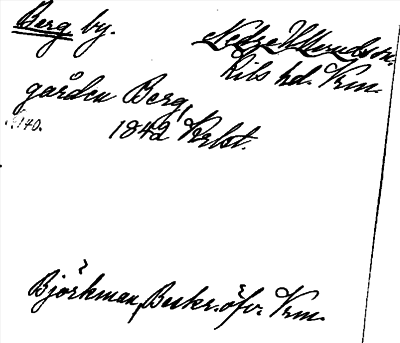 Berg by.
Nedre Ullerudssn.
Kils hd. Vrm.
gården Berg,
s. 140. 1842 Vrlst.
Björkman, Beskr. öfv. Vrm.